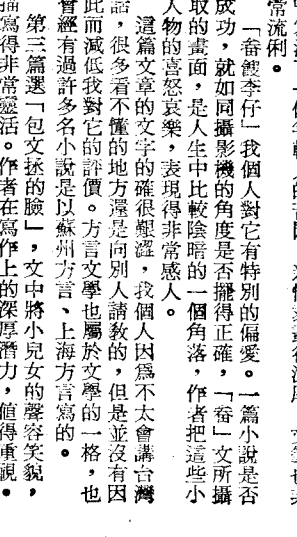 常流利。
「奮餿李仔」我個人對它有特別的偏愛。一篇小說是否
成功，就如同攝影機的角度是否擺得正確，「奮」文所攝
取的畫面，是人生中比較陰暗的一個角落，作者把這些小
人物的喜怒哀樂，表現得非常感人。
這篇文章的文字的確很艱澀，我個人因爲不太會講台灣
話，很多看不懂的地方還是向別人請教的，但是並沒有因
此而減低我對它的評價。方言文學也屬於文學的一格，也
曾經有過許多名小說是以蘇州方言、上海方言寫的。
第三篇選「包文拯的臉」，文中將小兒女的聲容笑貌，
描寫得非常靈活。作者在寫作上的深厚潛力，值得重視。